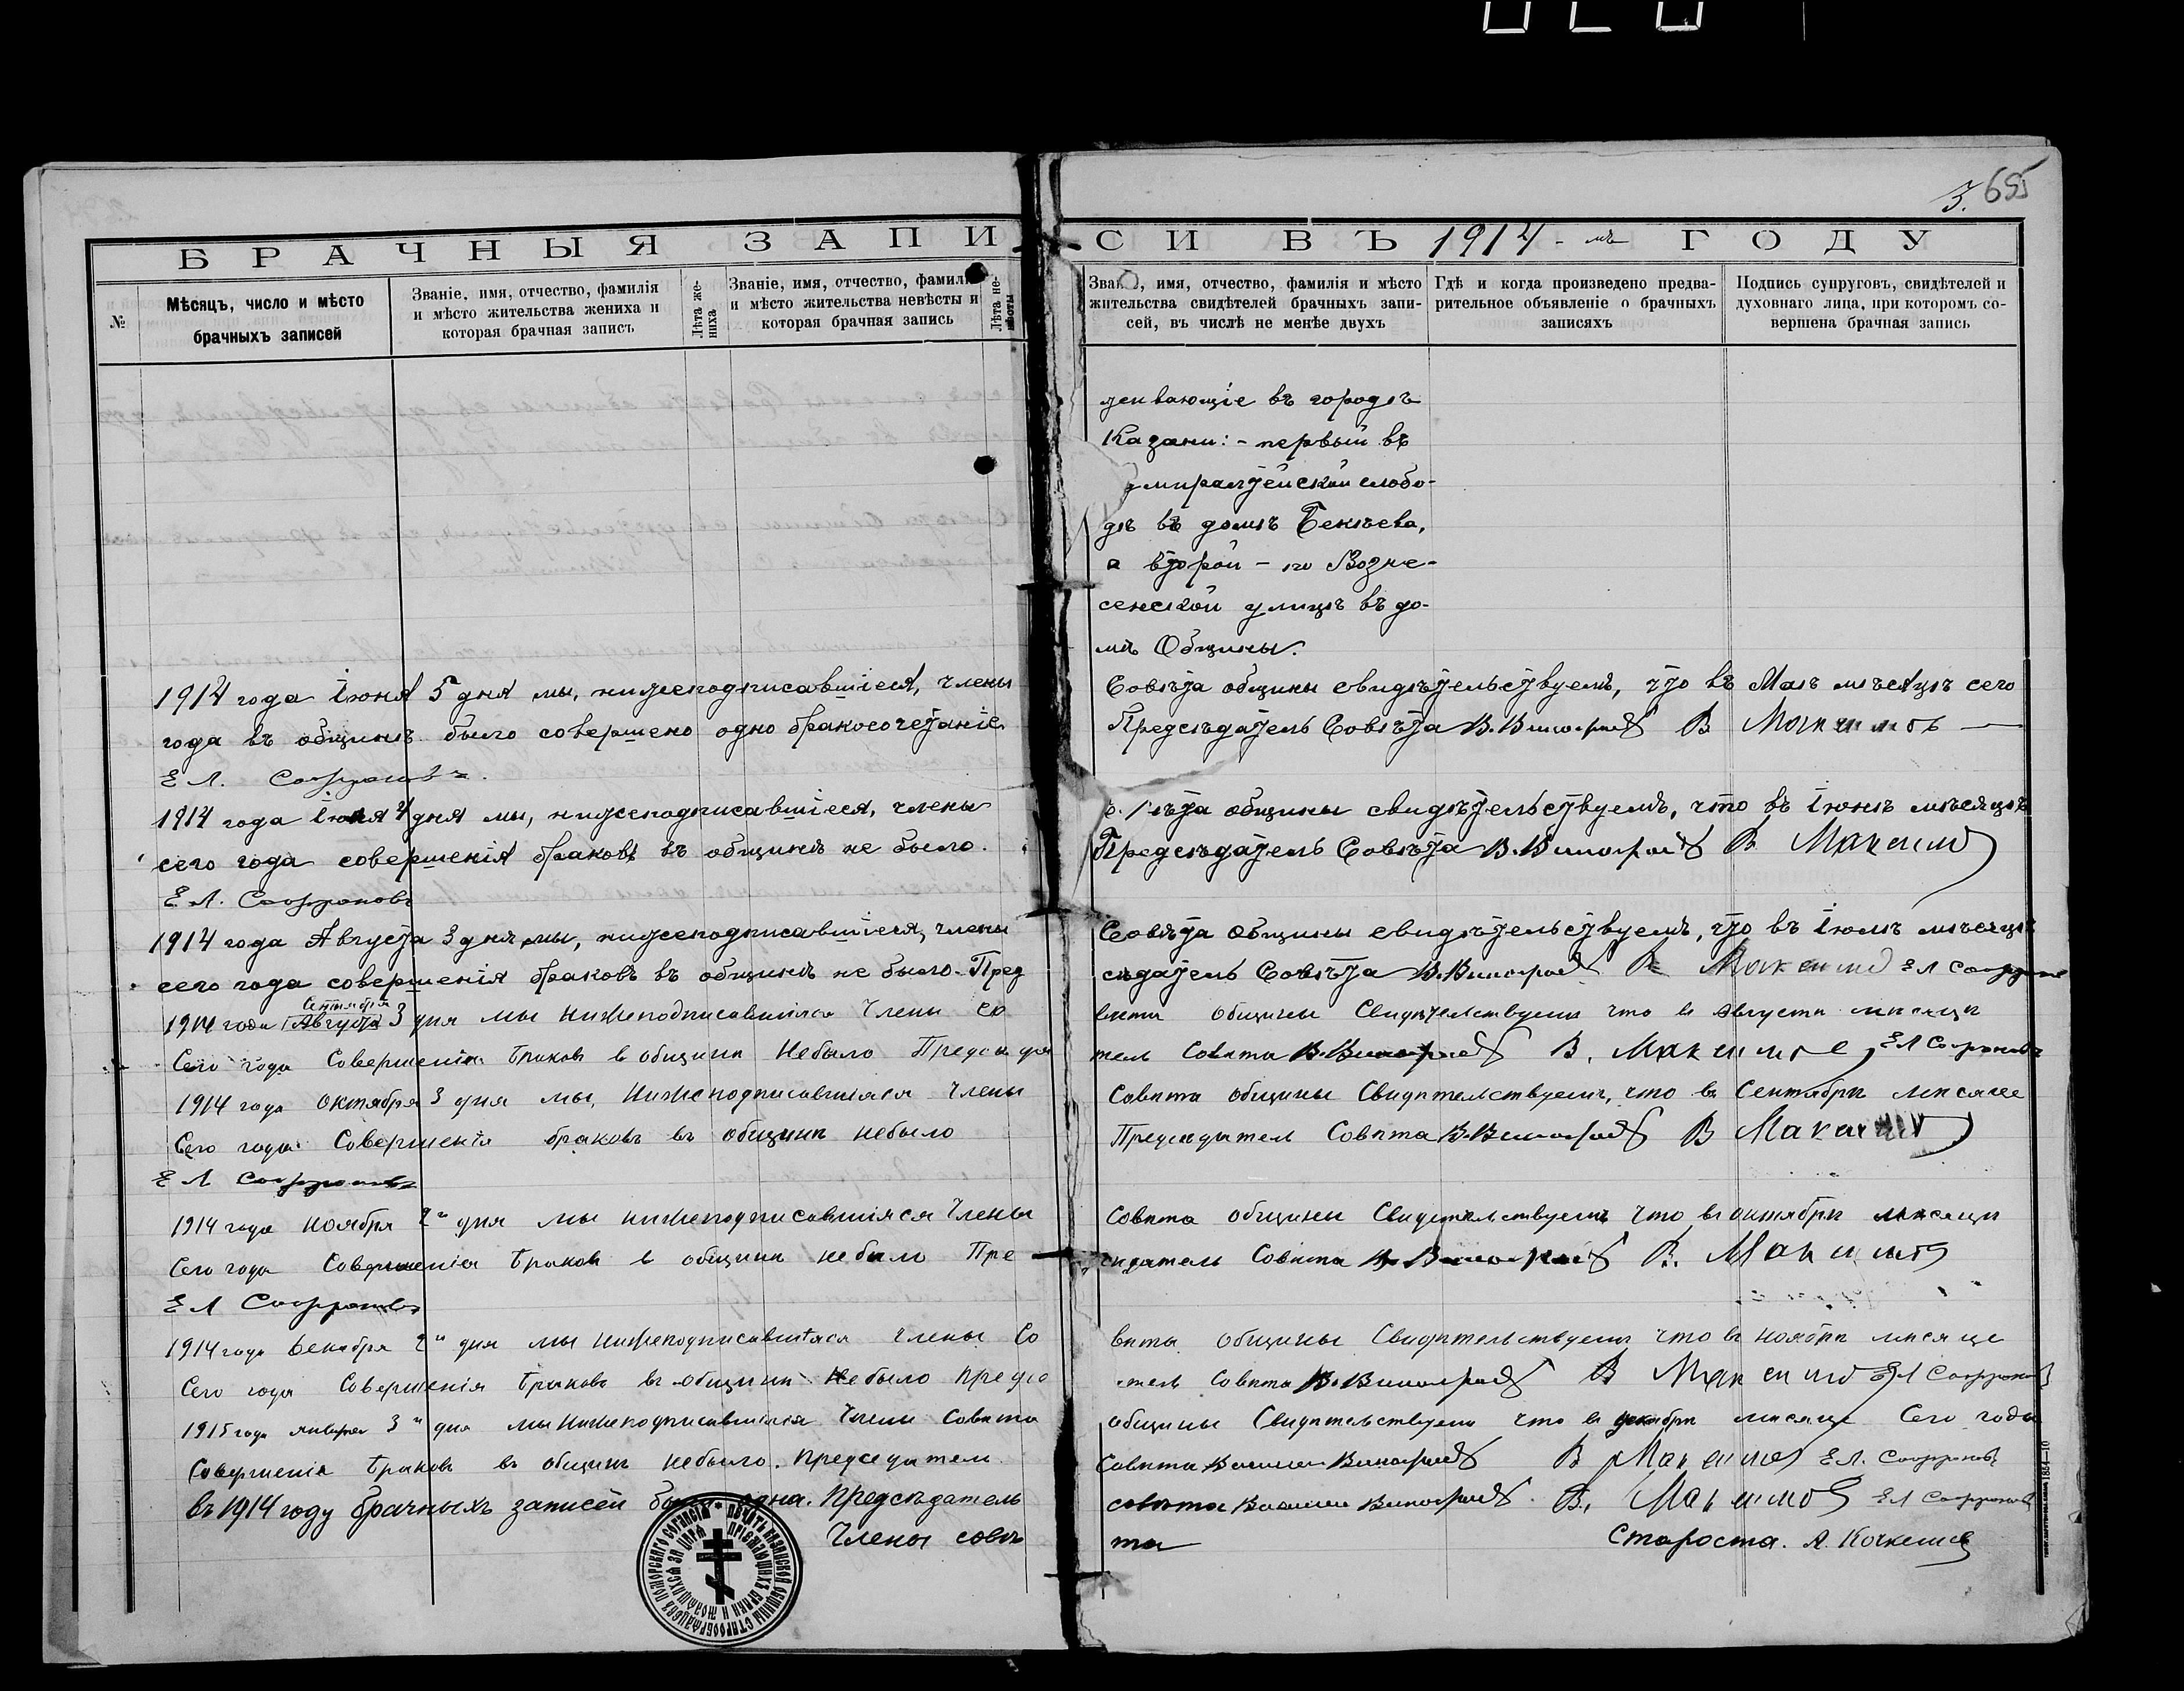 3. 695
БРАЧНЫЯ ЗАПИСИ ВЪ 1914-мъ ГОДУ
№
Мѣсяцъ, число и мѣсто
брачныхъ записей
Званіе, имя, отчество, фамилія
и мѣсто жительства жениха и
которая брачная запись
Лѣта же-
ниха
Званіе, имя, отчество, фамилія
и мѣсто жительства невѣсты и
которая брачная запись
Лѣта не-
вѣсты
Званіе, имя, отчество, фамилія и мѣсто
жительства свидѣтелей брачныхъ запи-
сей, въ числѣ не менѣе двухъ
Гдѣ и когда произведено предва-
рительное объявленіе о брачныхъ
записяхъ
Подпись супруговъ, свидѣтелей и
духовнаго лица, при которомъ со-
вершена брачная запись
живающіе въ городѣ
Казани: - первый въ
дмиралтейской слобо-
дѣ въ домѣ
а второй - по Возне-
сенской улицѣ въ до-
мѣ Общины.
1914 года Іюня 5 дня мы, нижеподписавшіеся, члены Совѣта общины свидѣтельствуемъ, что въ Маѣ мѣсяцѣ сего
года въ общинѣ было совершено одно бракосочетаніе. Предсѣдатель Совѣта В. Виноградов В Максимовъ
Е Л. Софроновъ.
1914 года Іюля 4 дня мы, нижеподписавшіеся, члены Совѣта общины свидѣтельствуемъ, что въ Іюнѣ мѣсяцѣ
сего года совершенія браковъ въ общинѣ не было. Предсѣдатель Совѣта В. Виноградов В Максимов
Е Л. Софроновъ
1914 года Августа 3 дня мы, нижеподписавшіеся, члены Совѣта Общины свидѣтельствуемъ, что въ Іюлѣ мѣсяцѣ
сего года совершенія браковъ въ общинѣ не было. Предсѣдатель Совѣта В. Виноградов В Максимов Е Л Софронов
Сентября
1914 года (Августа) 3 дня мы нижеподписавшіяся Члены Совѣта Общины Свидѣтелствуемъ что в Августѣ мѣсяцѣ
Сего года Совершенія браковъ в общинѣ Небыло Предсѣдател Совѣта В. Виноградов В. Максимовъ Е Л Софроновъ
1914 года октября 3 дня мы, Нижеподписавшіяся Члены Совѣта общины Свидѣтелствуемъ, что въ Сентябрѣ мѣсяце
Сего года Совершенія браковъ въ общинѣ небыло Предсѣдател Совѣта В. Виноградов В Максимов
Е Л Софроновъ
1914 года Ноября 2го дня мы нижеподписавшіяся Члены Совѣта общины Свидѣтелствуемъ что въ октябрѣ мѣсяцѣ
Сего года Совершенія браковъ в общинѣ небыло Предсѣдатель Совѣта В. Виноградов В. Максимов
Е Л Софроновъ
1914 года декабря 2го дня мы нижеподписавшіяся члены Совѣта общины Свидѣтелствуемъ что въ Ноябрѣ мѣсяце
Сего года Совершенія браковъ въ общинѣ Небыло Предсѣдатель Совѣта В. Виноградов В Максимов Е Л Софронов
1915 года января 3го дня мы нижеподписавшіяся Члены Совѣта общины Свидѣтельствуемъ что в декабрѣ мѣсяце Сего года
Совершенія браковъ въ общинѣ небыло. Председатель Совѣта Василий Виноградов В Максимов Е Л. Софроновъ
въ 1914 году брачныхъ записей была одна. Предсѣдатель совѣта Василий Виноградов. В. Максимов Е Л Софроновъ
Члены совѣта Староста. А.